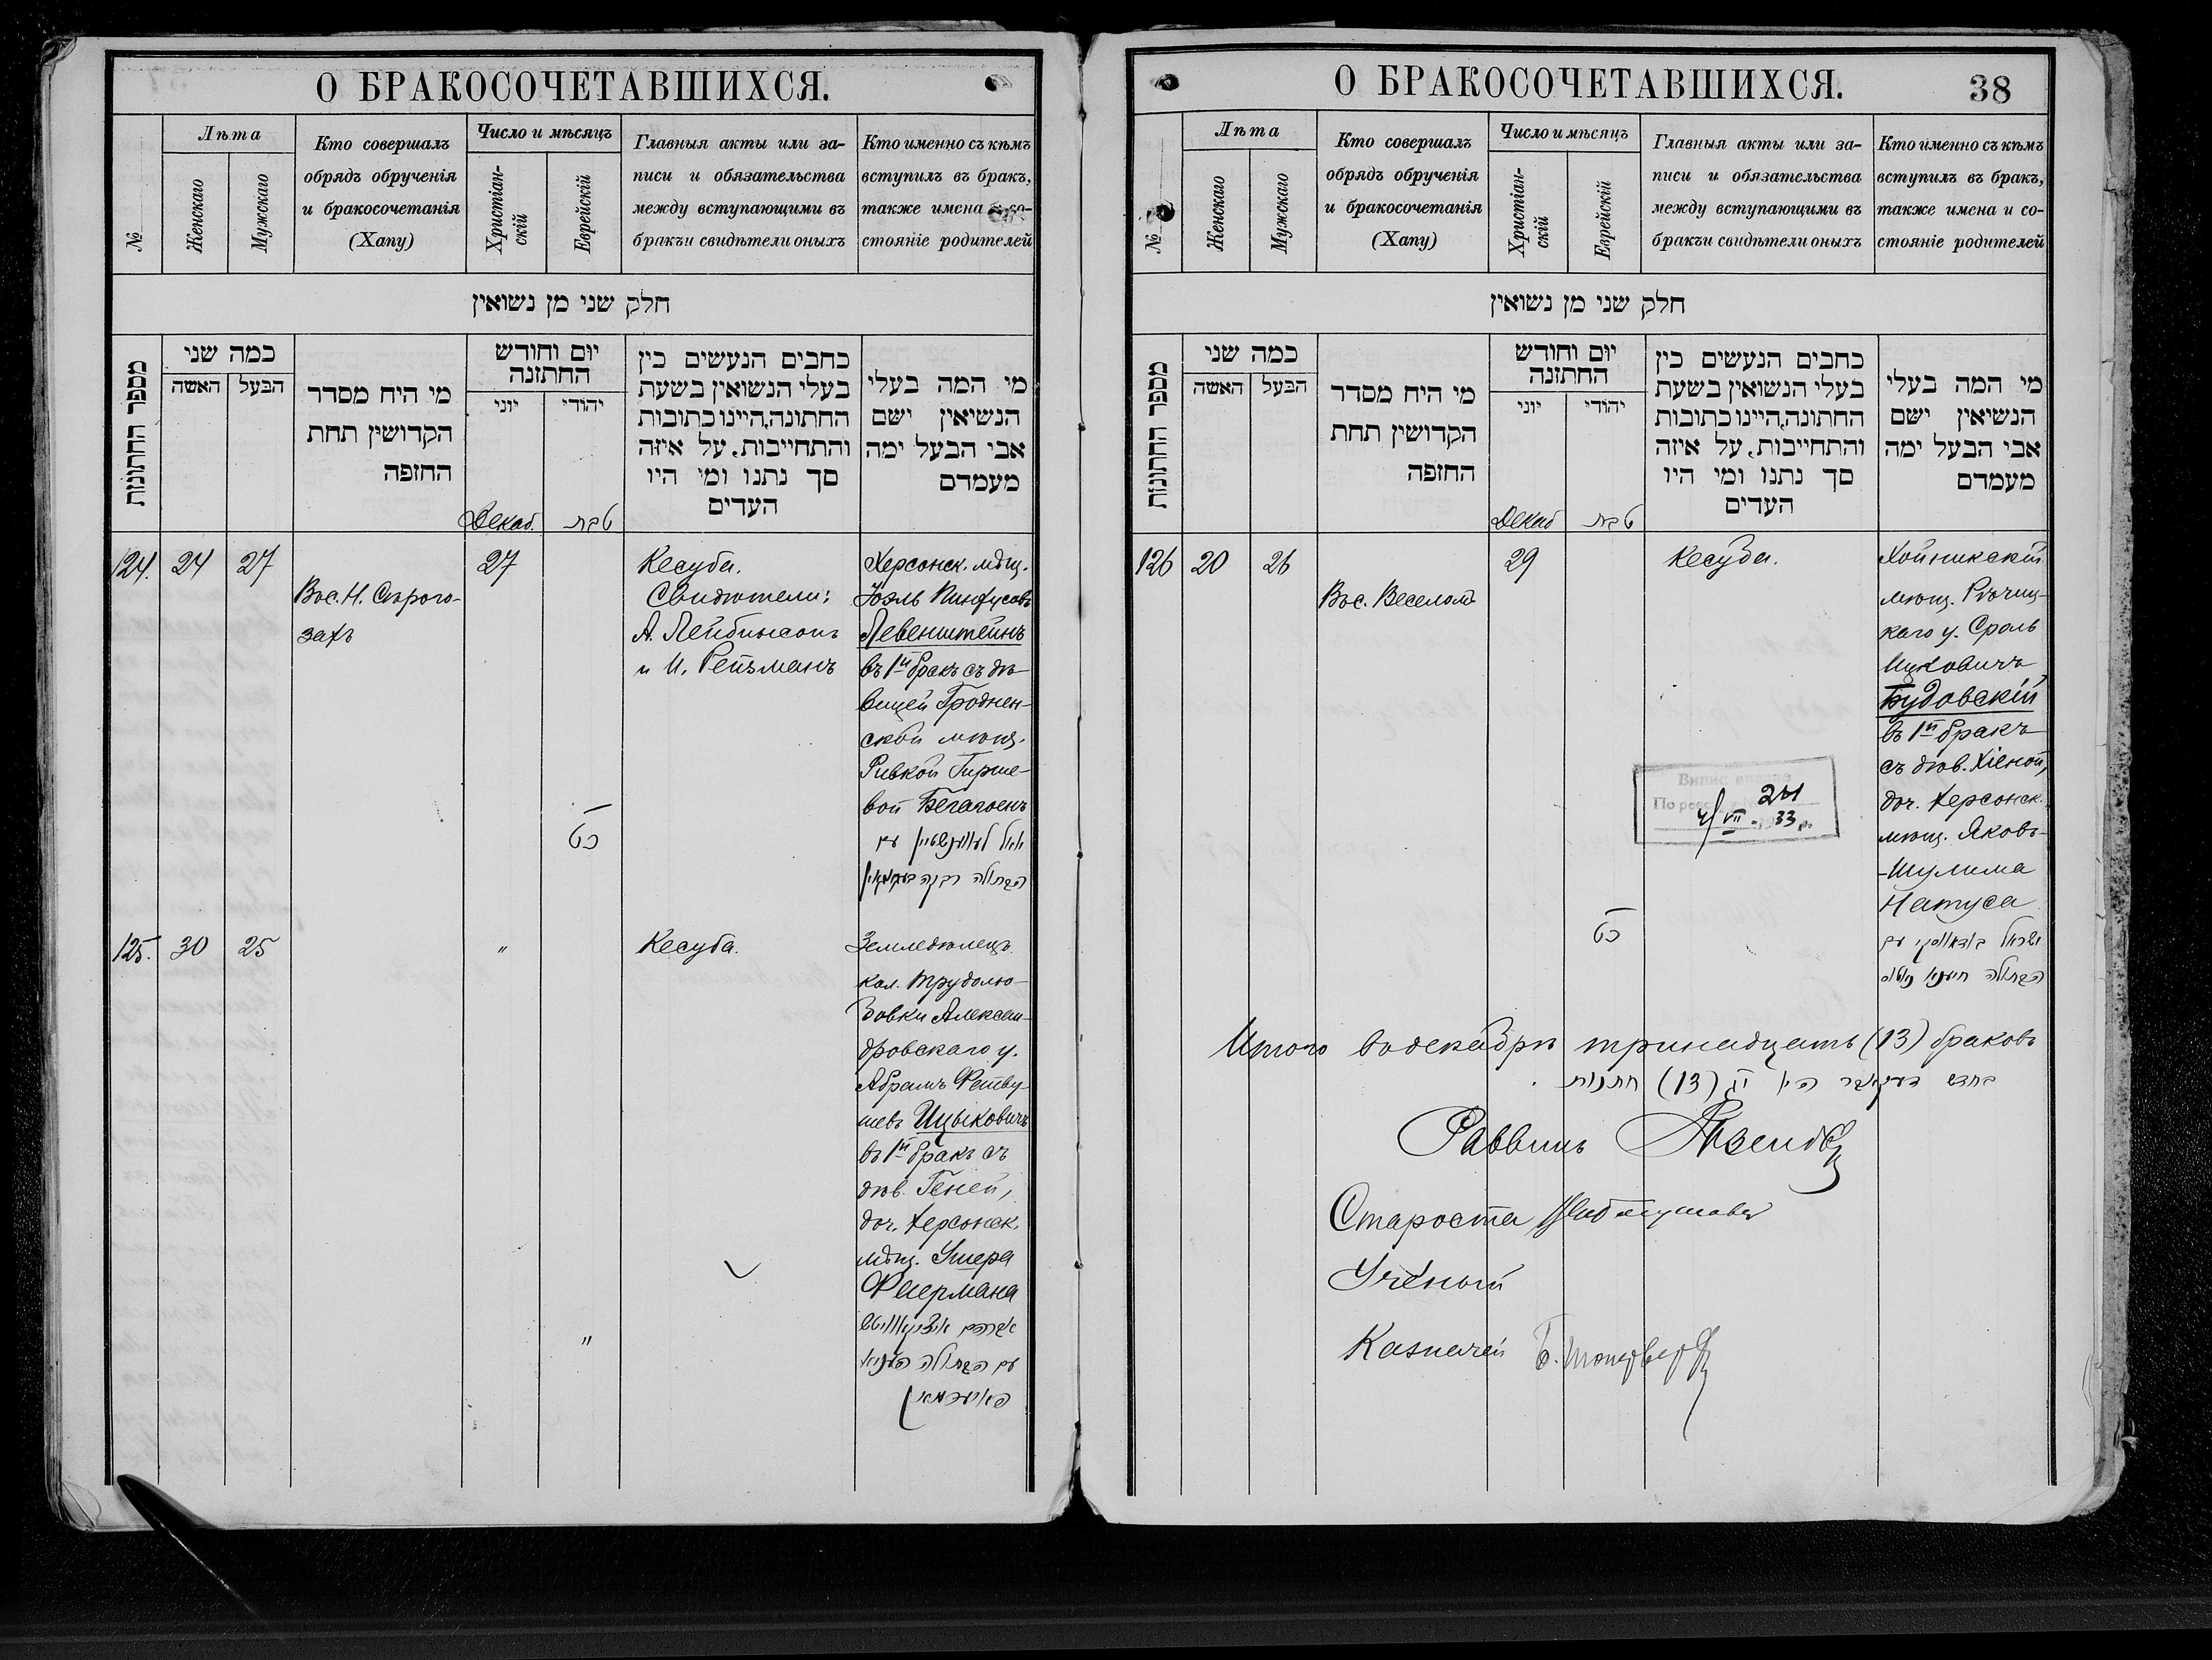 О БРАКОСОЧЕТАВШИХСЯ.
№
Лѣта
Женскаго
Мужскаго
Кто совершалъ
обрядъ обрученія
и бракосочетанія
(Хапу)
Число и мѣсяцъ
Христіан-
скій
Еврейскій
Главныя акты или за-
писи и обязательства
между вступающими въ
бракъ и свидѣтели оныхъ
Кто именно съ кѣмъ
вступилъ въ бракъ,
также имена и со-
стояніе родителей
חלק שני מן נשואין
מספר החתונות
כמה שני
האשה
הבעל
מי היח מסדר
הקדושין תחת
החופה
יום וחודש
החתונה
יוני
יהודי
Декаб.
טבת
כחבים הנעשים כין
בעלי הנשואין בשעת
החתונה,היינו כתובות
והתחייבות, על איזה
סך נתנו ומי היו
העדים
מי המה בעלי
הנשיאין ישם
אבי הבעל ימה
מעמדם
124.
24
27
Вос. Н. Сѣрого-
захъ
27
כט
Кесуба.
Свидѣтели:
А. Лейбинсонъ
и И. Рейзманъ
Херсонск. мѣщ.
Іоэль Пинхусовъ
Левенштейнъ
въ 1й бракъ съ дѣ-
вицей Гроднен-
ской мѣщ.
Ривкой Гирше-
вой
יואל לעווענשטיין עם
הבתולה רבקה
125.
30
25
"
"
Кесуба.
Земледѣлецъ
кол. Трудолю-
бовки Алексан-
дровскаго у.
Абрамъ Фейву-
шевъ Ицыковичъ
въ 1й бракъ съ
дѣв. Геней,
доч. Херсонск.
мѣщ. Ушера
Фаермана
אברהם איציקאוויטש
עם הבתולה העניא
פאיערמאן
О БРАКОСОЧЕТАВШИХСЯ.
38
№
Лѣта
Женскаго
Мужскаго
Кто совершалъ
обрядъ обрученія
и бракосочетанія
(Хапу)
Число и мѣсяцъ
Христіан-
скій
Еврейскій
Главныя акты или за-
писи и обязательства
между вступающими въ
бракъ и свидѣтели оныхъ
Кто именно съ кѣмъ
вступилъ въ бракъ,
также имена и со-
стояніе родителей
חלק שני מן נשואין
מספר החתונות
כמה שני
האשה
הבעל
מי היח מסדר
הקדושין תחת
החופה
יום וחודש
החתונה
יוני
יהודי
Декаб
טבת
כחבים הנעשים כין
בעלי הנשואין בשעת
החתונה,היינו כתובות
והתחייבות, על איזה
סך נתנו ומי היו
העדים
מי המה בעלי
הנשיאין ישם
אבי הבעל ימה
מעמדם
126
20
26
Вос. Веселомъ
29
כט
Кесуба.
Хойникскій
мѣщ. Рѣчиц-
каго у. Сроль
Ицковичъ
Будовскій
въ 1й бракъ
съ дѣв. Хіеной,
доч. Херсонск.
мѣщ. Яковъ-
-Шулима
Натуса
ישראל בודאווסקי עם
הבתולה חיענא נאטוס
Итого въ декабрѣ тринадцать (13) браковъ
בחדש דעקאבר היו יג (13) חתנות
Раввинъ
Староста
Ученый
Казначей